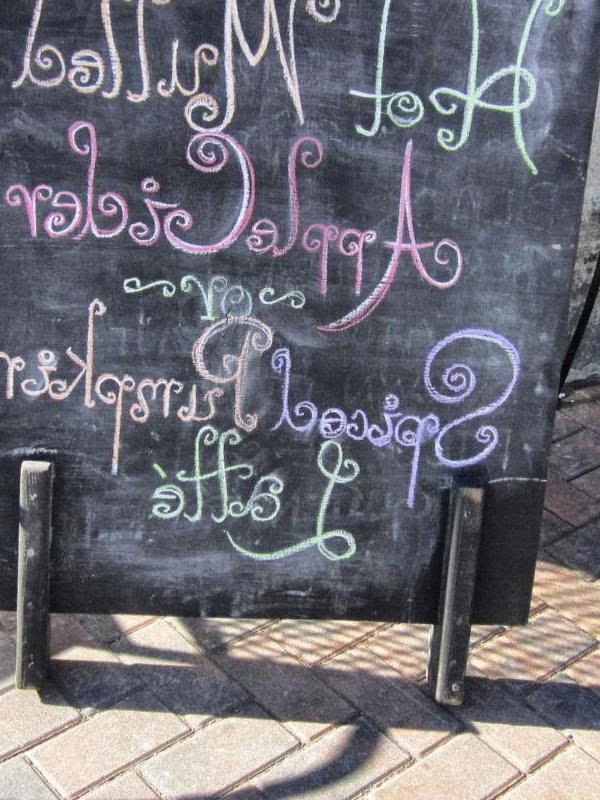 Hot Mulled
Apple Cider
~ or ~
Spiced Pumpkin
Lattè